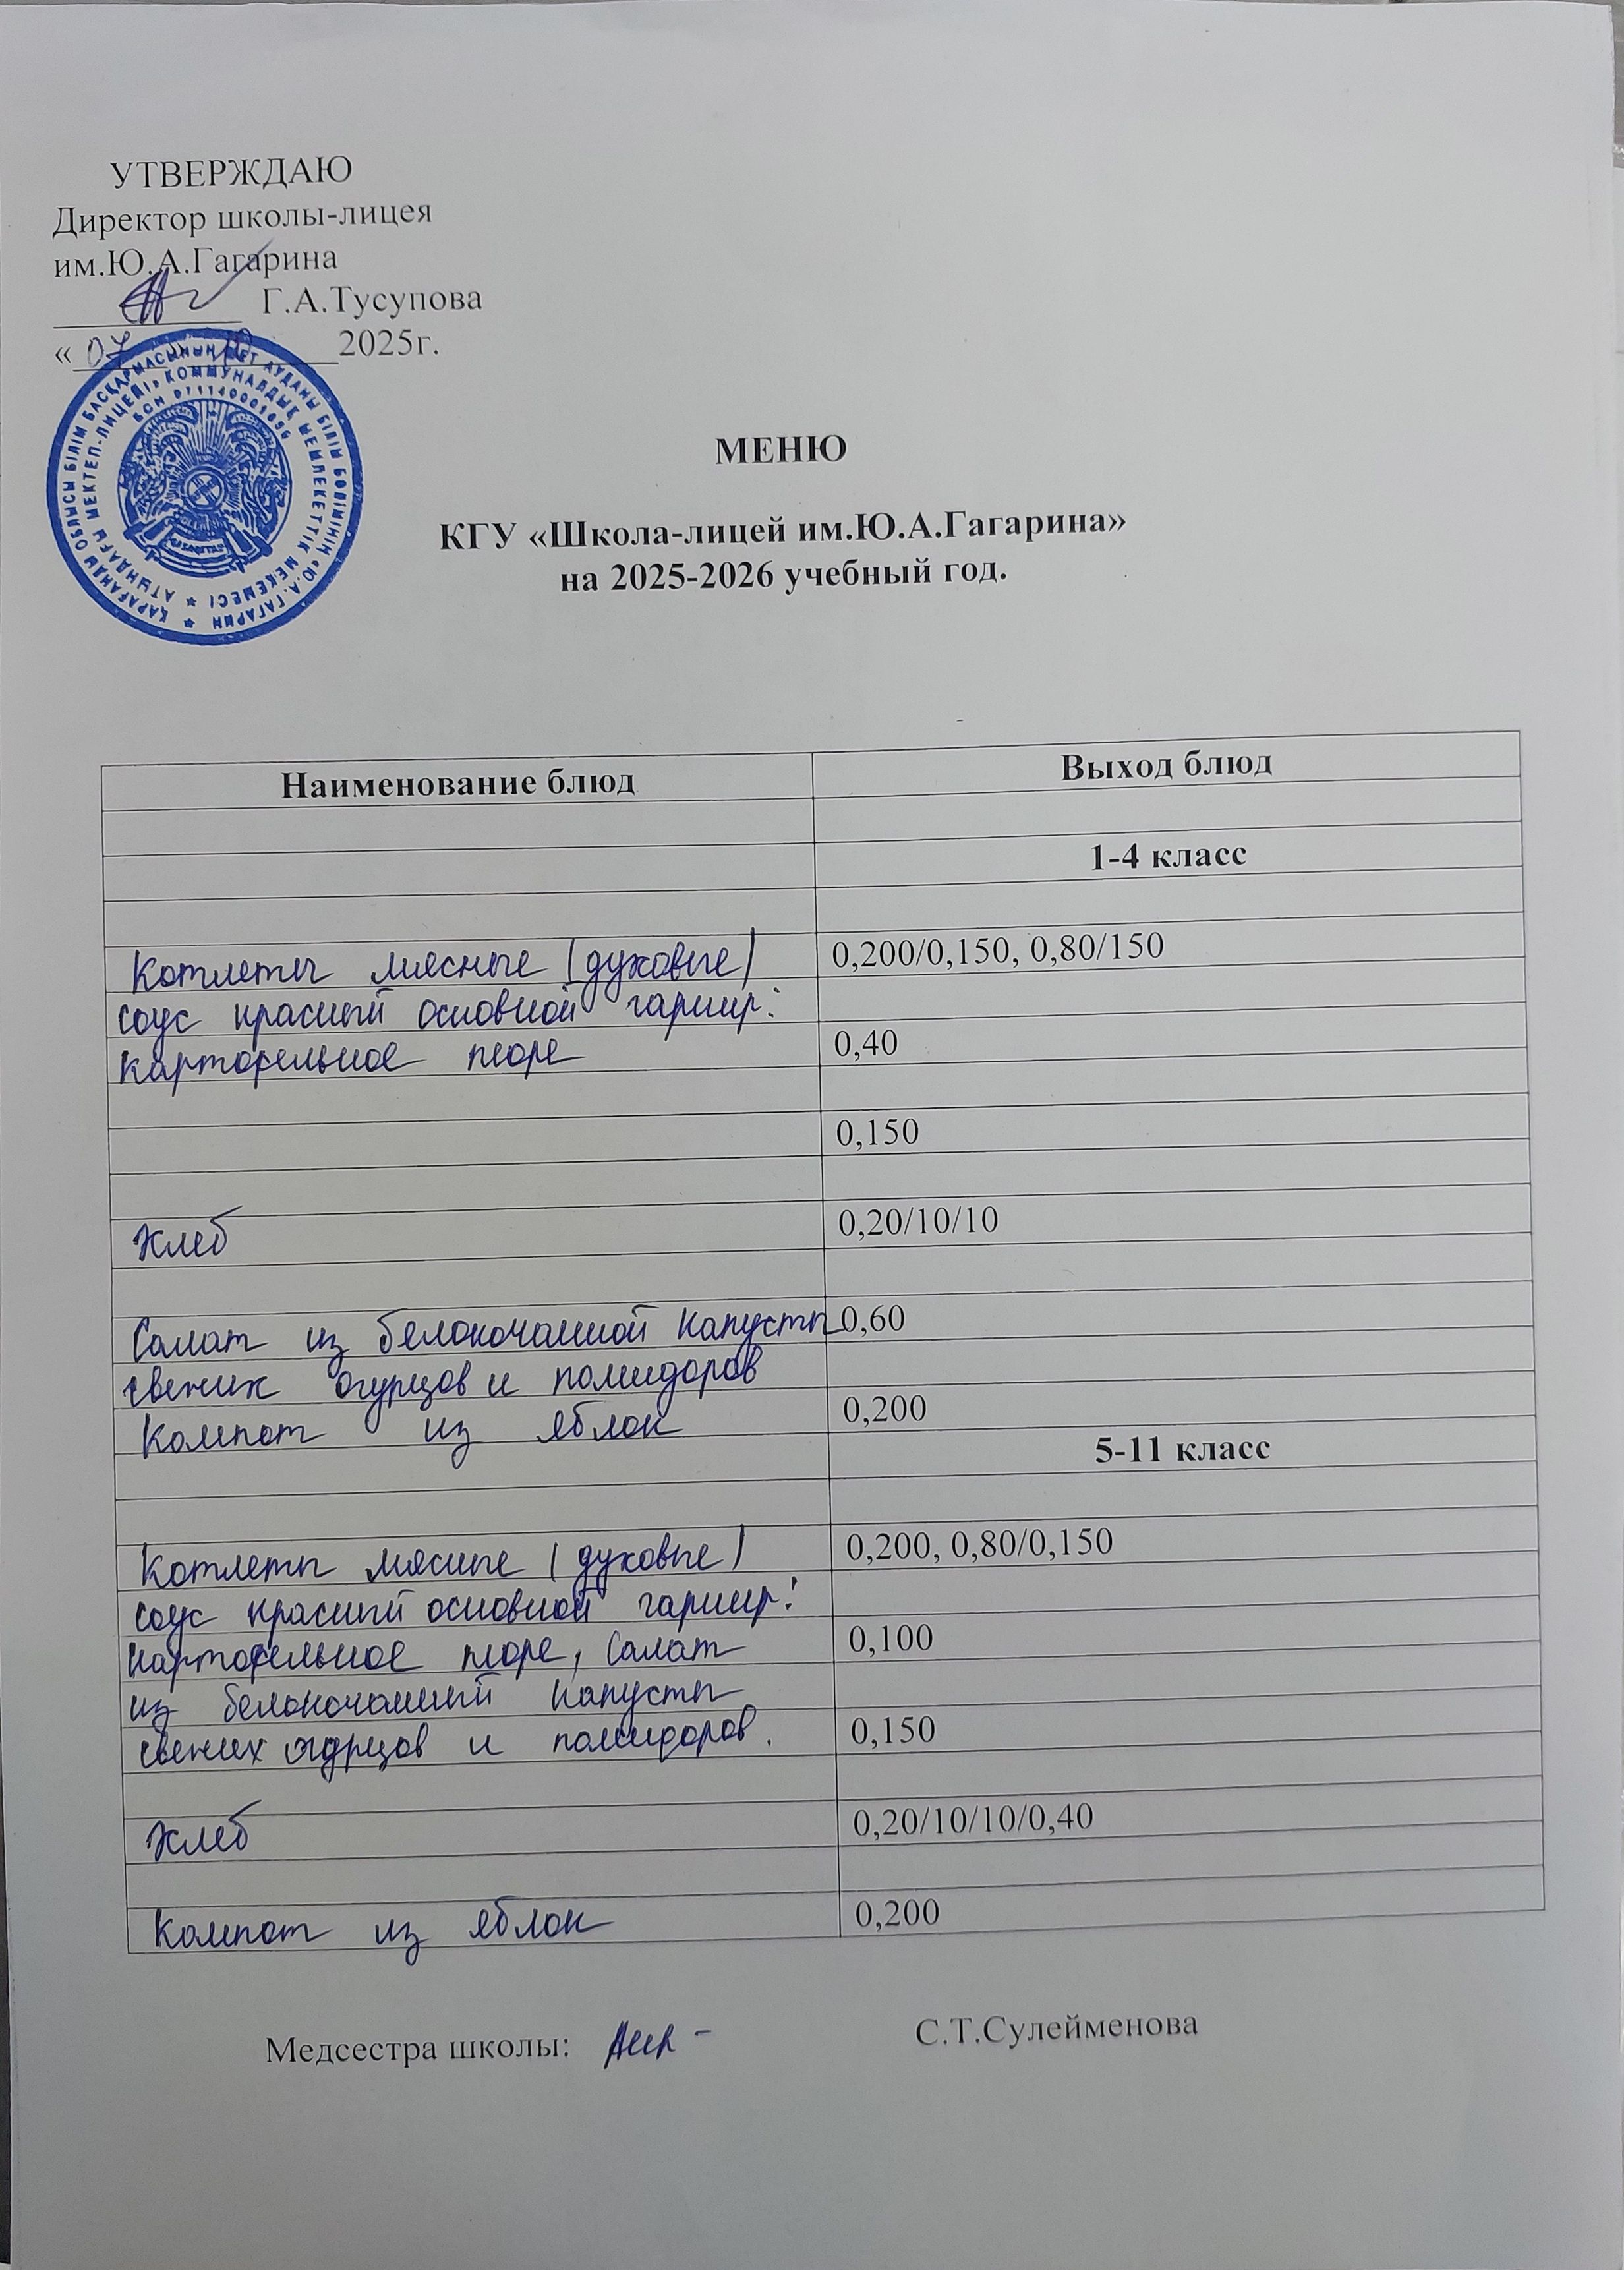 УТВЕРЖДАЮ
Директор школы-лицея
им.Ю.А.Гагарина
Г.А.Тусупова
«07» 10 2025г.
ҚАРАҒАНДЫ ОБЛЫСЫ БІЛІМ БАСҚАРМАСЫНЫҢ ШЕТ АУДАНЫ БІЛІМ БӨЛІМІНІҢ «Ю.А. ГАГАРИН
АТЫНДАҒЫ МЕКТЕП-ЛИЦЕЙІ» КОММУНАЛДЫҚ МЕМЛЕКЕТТІК МЕКЕМЕСІ
БСН
МЕНЮ
КГУ «Школа-лицей им.Ю.А.Гагарина»
на 2025-2026 учебный год.
Наименование блюд Выход блюд
1-4 класс
Котлеты мясные (духовые) 0,200/0,150, 0,80/150
соус красный основной гарнир:
Картофельное пюре 0,40
0,150
Хлеб 0,20/10/10
Салат из белокочанной капусты 0,60
свежих огурцов и помидоров
Компот из яблок 0,200
5-11 класс
Котлеты мясные (духовые) 0,200, 0,80/0,150
соус красный основной гарнир:
картофельное пюре, Салат 0,100
из белокочанный капусты
свежих огурцов и помидоров. 0,150
Хлеб 0,20/10/10/0,40
Компот из яблок 0,200
Медсестра школы: С.Т.Сулейменова